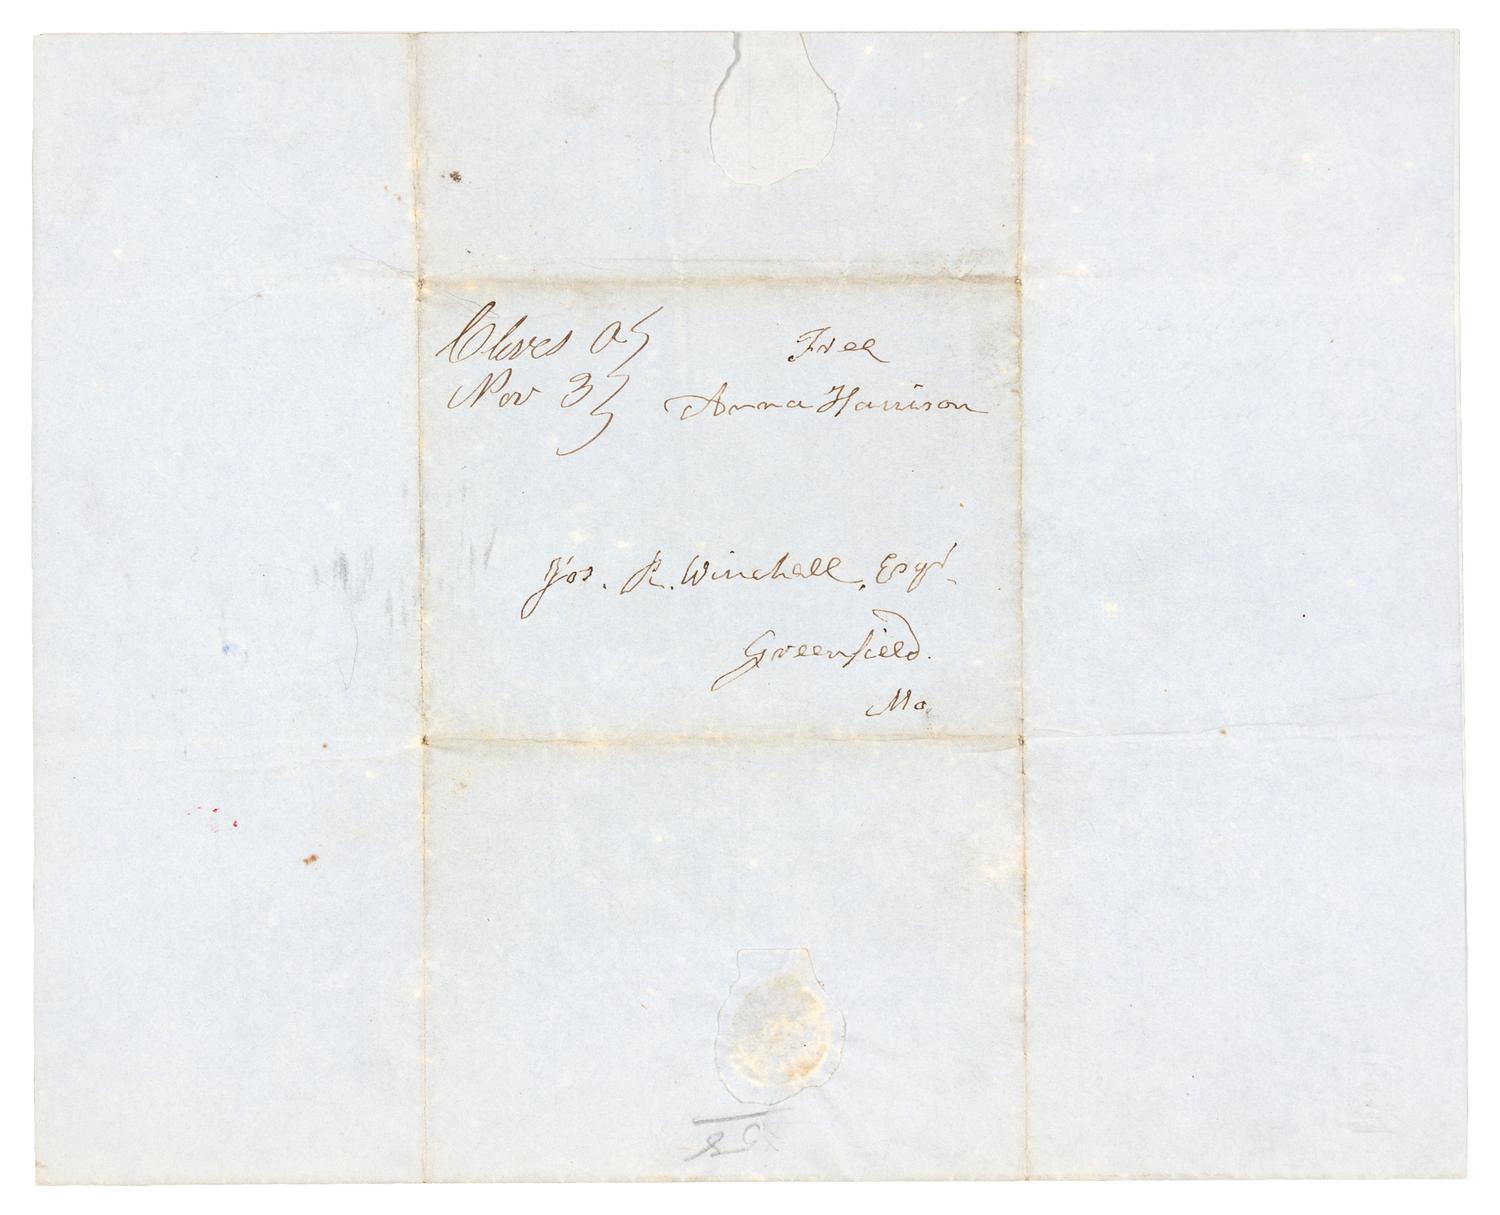 Cloves O
Nov 3
Free
Anna Harrison
Jos. R. Winchall, Esqr.
Greenfield.
Mo